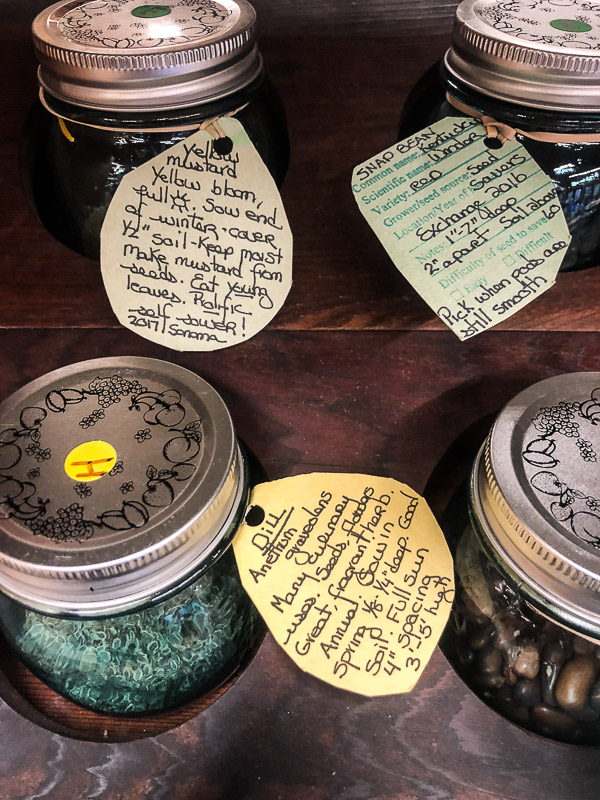 Yellow
mustard
Yellow bloom,
full ☼. Sow end
of winter-cover
1/2" soil-keep moist
make mustard from
seeds. Eat young
leaves. Prolific
self sower!
2017/Sonoma
SNAP BEAN
Common name: Kentucky
Scientific name: Wonder
Variety: Red
Grower/seed source: Seed
Location/Year of Savers
Exchange 2016
Notes: 1"-2" deep
2" apart Soil above
60
Difficulty of seed to save
Easy Difficult
Pick when pods are
still smooth
H
Dill
Anethum
graveolens
Many Culinary
uses. Seeds, Flowers
Great fragrant Herb,
Annual. Sow in
Spring 1/8-1/4" deep. Good
Soil. Full sun
4" spacing
3'-5' high